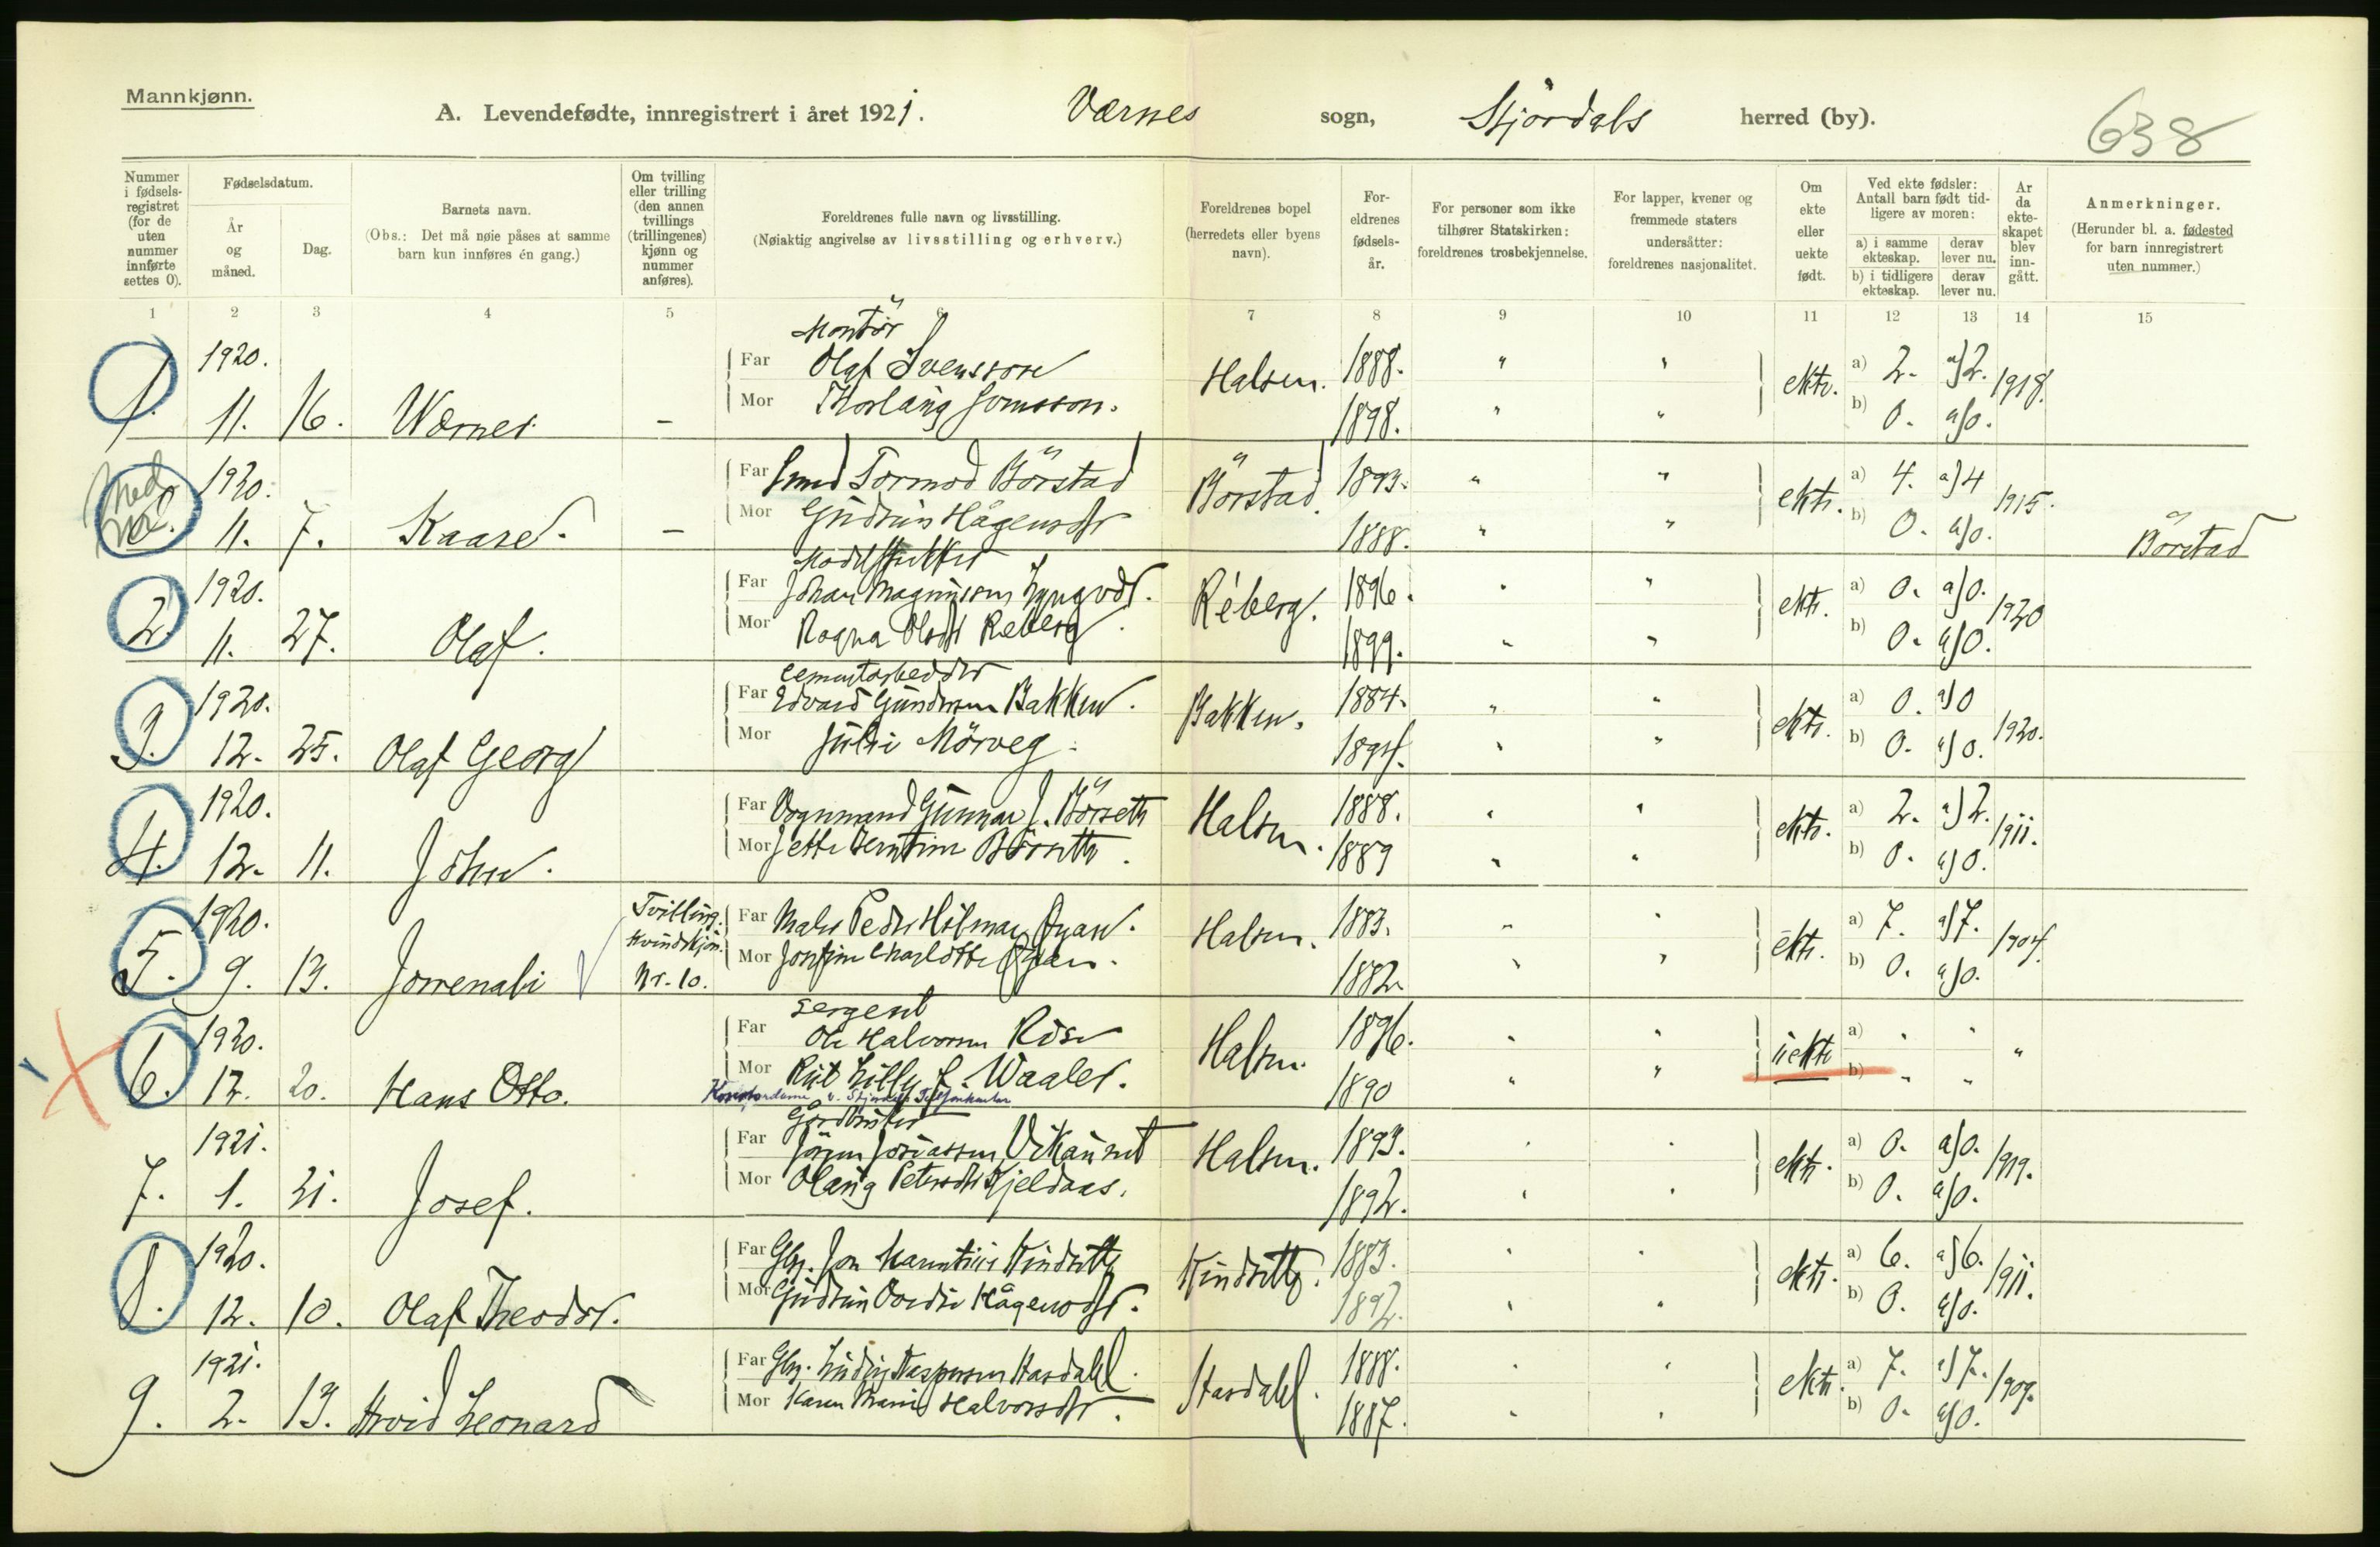 Mannkjønn.
A. Levendefødte, innregistrert i året 1921. Værnes sogn, Stjørdals herred (by). 638
Nummer i fødsels-registret (for de uten nummer innførte settes 0).
Fødselsdatum.
År og måned.
Dag.
Barnets navn.
(Obs.: Det må nøie påses at samme barn kun innføres én gang.)
Om tvilling eller trilling (den annen tvillings (trillingenes) kjønn og nummer anføres).
Foreldrenes fulle navn og livsstilling.
(Nøiaktig angivelse av livsstilling og erhverv.)
Foreldrenes bopel (herredets eller byens navn).
For-eldrenes fødsels-år.
For personer som ikke tilhører Statskirken: foreldrenes trosbekjennelse.
For lapper, kvener og fremmede staters undersåtter: foreldrenes nasjonalitet.
Om ekte eller uekte født.
Ved ekte fødsler: Antall barn født tid-ligere av moren:
a) i samme ekteskap. derav lever nu.
b) i tidligere ekteskap. derav lever nu.
År da ekte-skapet blev inn-gått.
Anmerkninger.
(Herunder bl. a. fødested for barn innregistrert uten nummer.)
1 2 3 4 5 6 7 8 9 10 11 12 13 14 15
Montör
1920. Far Olaf Svensson Halsen. 1888. " " ekte. a) 2. a) 2. 1918.
1. 11. 16. Werner - Mor 1898. " " b) 0. a) 0.
1920. Far Smed Tormod Börstad Börstad. 1893. " " ekte. a) 4. a) 4 1915.
0. 11. 7. Kaare. - Mor Gudrun Hågensdtr 1888. " " b) 0. a) 0. Börstad
1920. Far Johan Magnussen Réberg. 1896. " " ekte. a) 0. a) 0. 1920
2. 11. 27. Olaf. Mor Ragna Olsdtr Reberg. 1899. " " b) 0. a) 0.
Cementarbeider
1920. Far Edvard Gundersen Bakken. Bakken. 1884. " " ekte. a) 0. a) 0 1920.
3. 12. 25. Olaf Georg Mor Julie Mörveg. 1894. " " b) 0. a) 0.
1920. Far Vognmand Gunnar J. Börseth Halsen. 1888. " " ekte. a) 2. a) 2. 1911.
4. 12. 11. John. Mor Jette Berntine Börseth. 1889 " " b) 0. a) 0.
1920. Tvilling. Far Maler Peder Hilmar Öyan. Halsen. 1883. " " ekte. a) 7. a) 7. 1904.
5. 9. 13. Kvindekjön. Nr. 10. Mor Josefine Charlotte Öyan. 1882. " " b) 0. a) 0.
Sergent
1920. Far Ole Halvorsen Halsen. 1896. " " uekte a) " " "
6. 12. 20. Hans Otto. Mor Rut Lilly L. Waaler. 1890 " " b) " "
Gårdbruker
1921. Far Jörgen Josiassen Vikaunet Halsen. 1893. " " ekte. a) 0. a) 0. 1919.
7. 1. 31. Josef. Mor Olaug Petersdtr Kjeldaas. 1892. " " b) 0. a) 0.
1920. Far Gbr. Jon Kindseth Kindseth. 1883. " " ekte. a) 6. a) 6. 1911.
8. 12. 10. Olaf Theodor. Mor Gudrun Hågensdtr. 1892. " " b) 0. a) 0.
1921. Far Gbr. Ludvig Kaspersen Hasdahl. 1888. " " ekte. a) 7. a) 7. 1909.
9. 2. 13. Leonard Mor Karen Halvorsdtr. 1887. " " b) 0. a) 0.